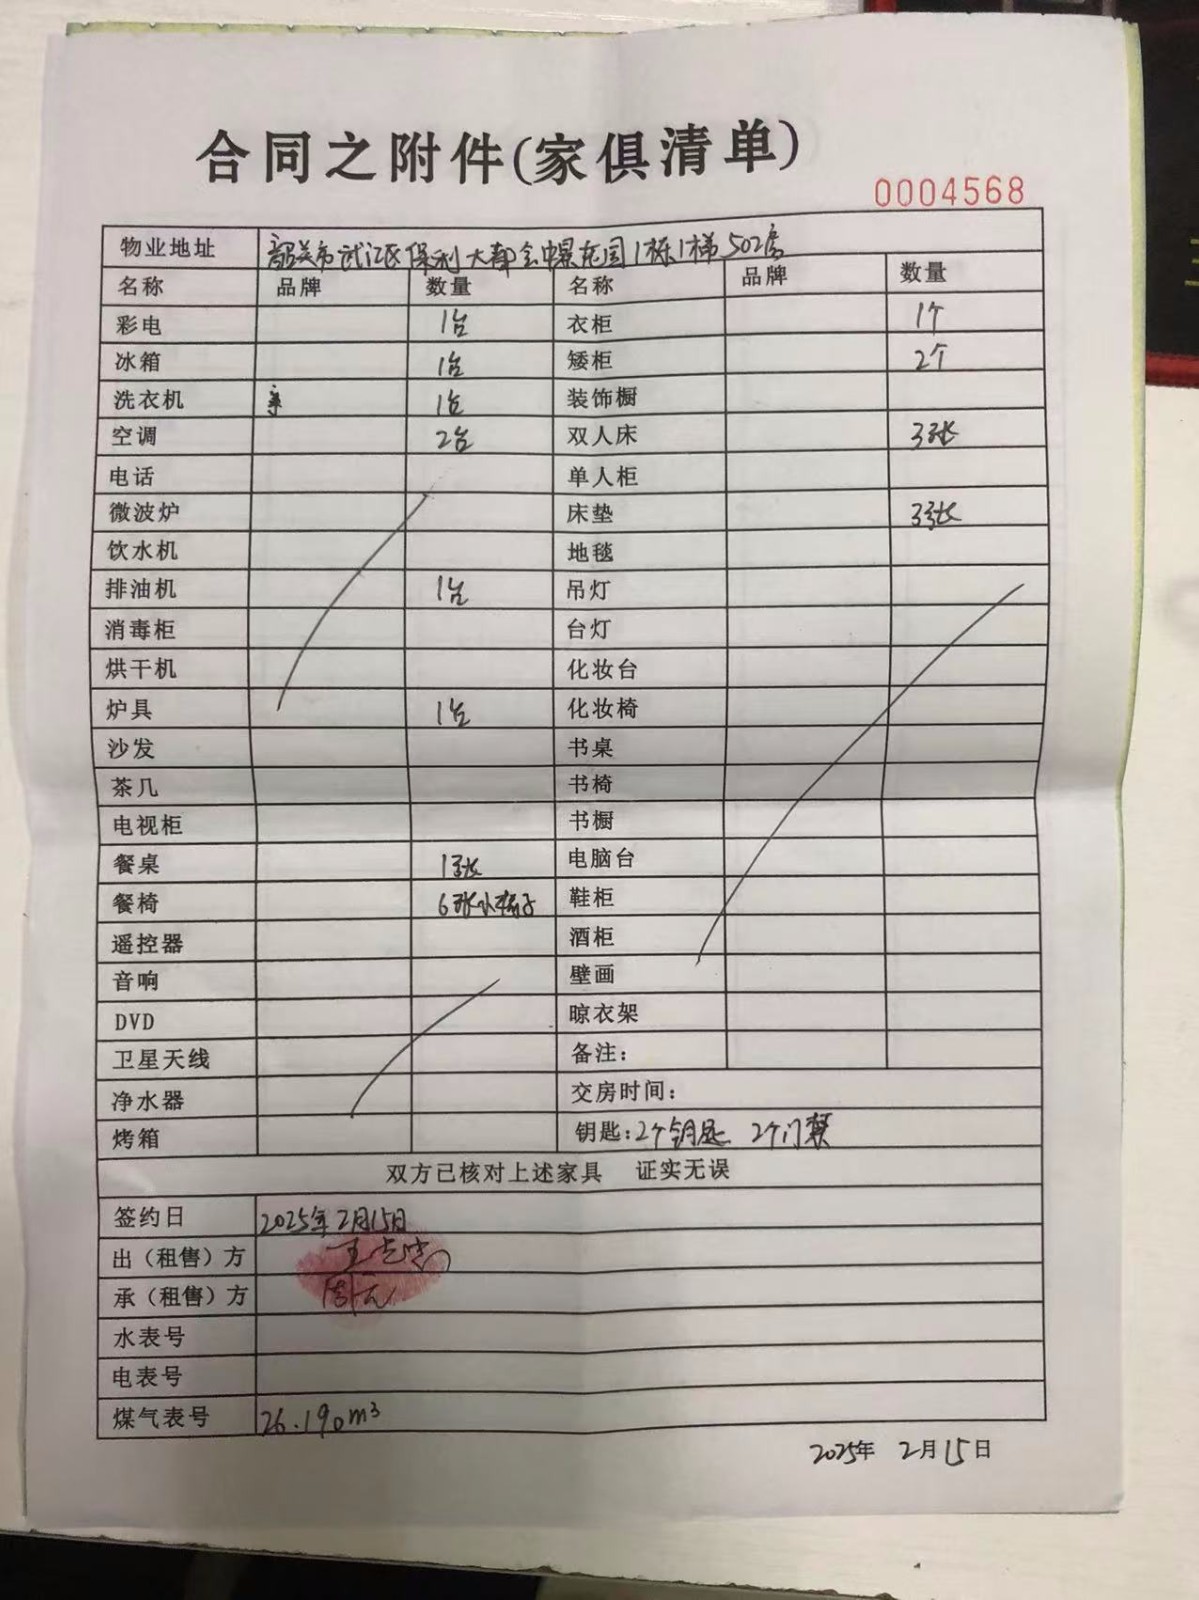 合同之附件(家俱清单)
0004568
物业地址 韶关市武江区保利大都会中景花园1栋1梯502房
名称 品牌 数量 名称 品牌 数量
彩电 1台 衣柜 1个
冰箱 1台 矮柜 2个
洗衣机 1台 装饰橱
空调 2台 双人床 3张
电话 单人柜
微波炉 床垫 3张
饮水机 地毯
排油机 1台 吊灯
消毒柜 台灯
烘干机 化妆台
炉具 1台 化妆椅
沙发 书桌
茶几 书椅
电视柜 书橱
餐桌 1张 电脑台
餐椅 6张小椅子 鞋柜
遥控器 酒柜
音响 壁画
DVD 晾衣架
卫星天线 备注:
净水器 交房时间:
烤箱 钥匙:2个钥匙 2个门禁
双方已核对上述家具 证实无误
签约日 2025年2月15日
出（租售）方
承（租售）方 周元
水表号
电表号
煤气表号 26.190m³
2025年 2月15日